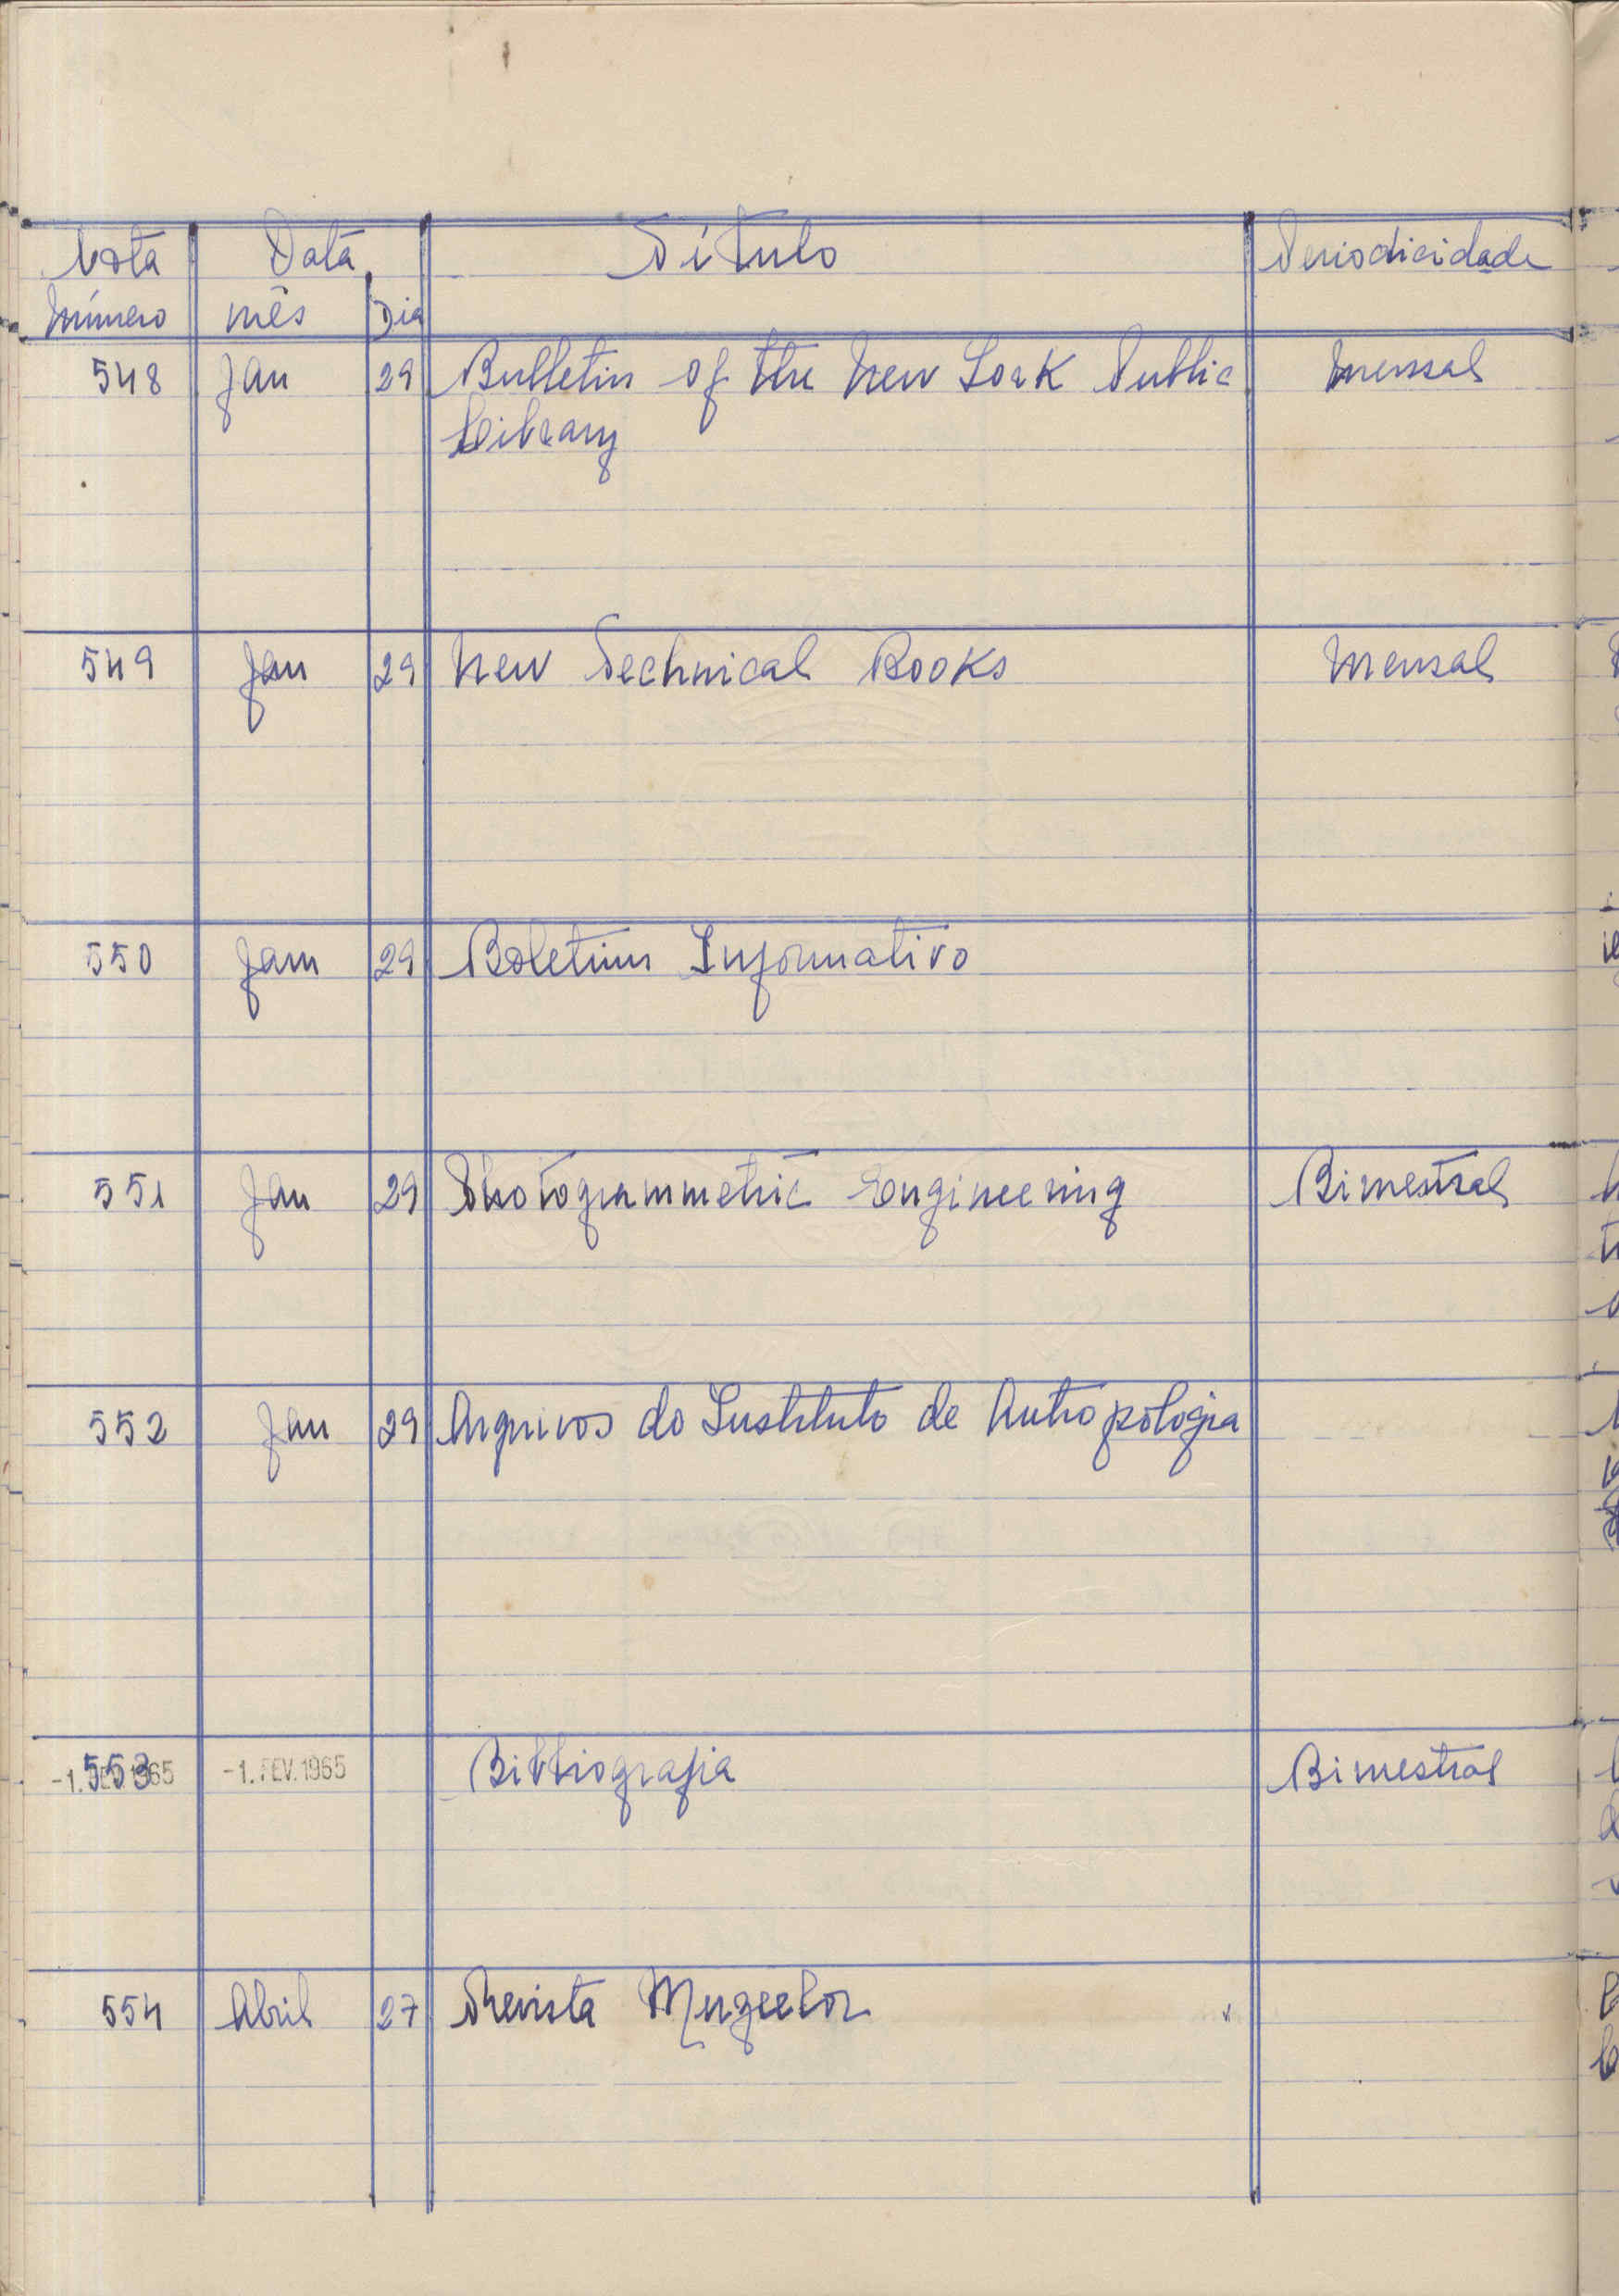 Nota Data Título Periodicidade
Número mês Dia
548 Jan 29 Bulletin of the New York Public mensal
Library
549 Jan 29 New Technical Books Mensal
550 Jan 29 Boletim Informativo
551 Jan 29 Photogrammetric Engineering Bimestral
552 Jan 29 Arquivos do Instituto de Antropologia
553 -1. FEV. 1965 Bibliografia Bimestral
554 Abril 27 Revista